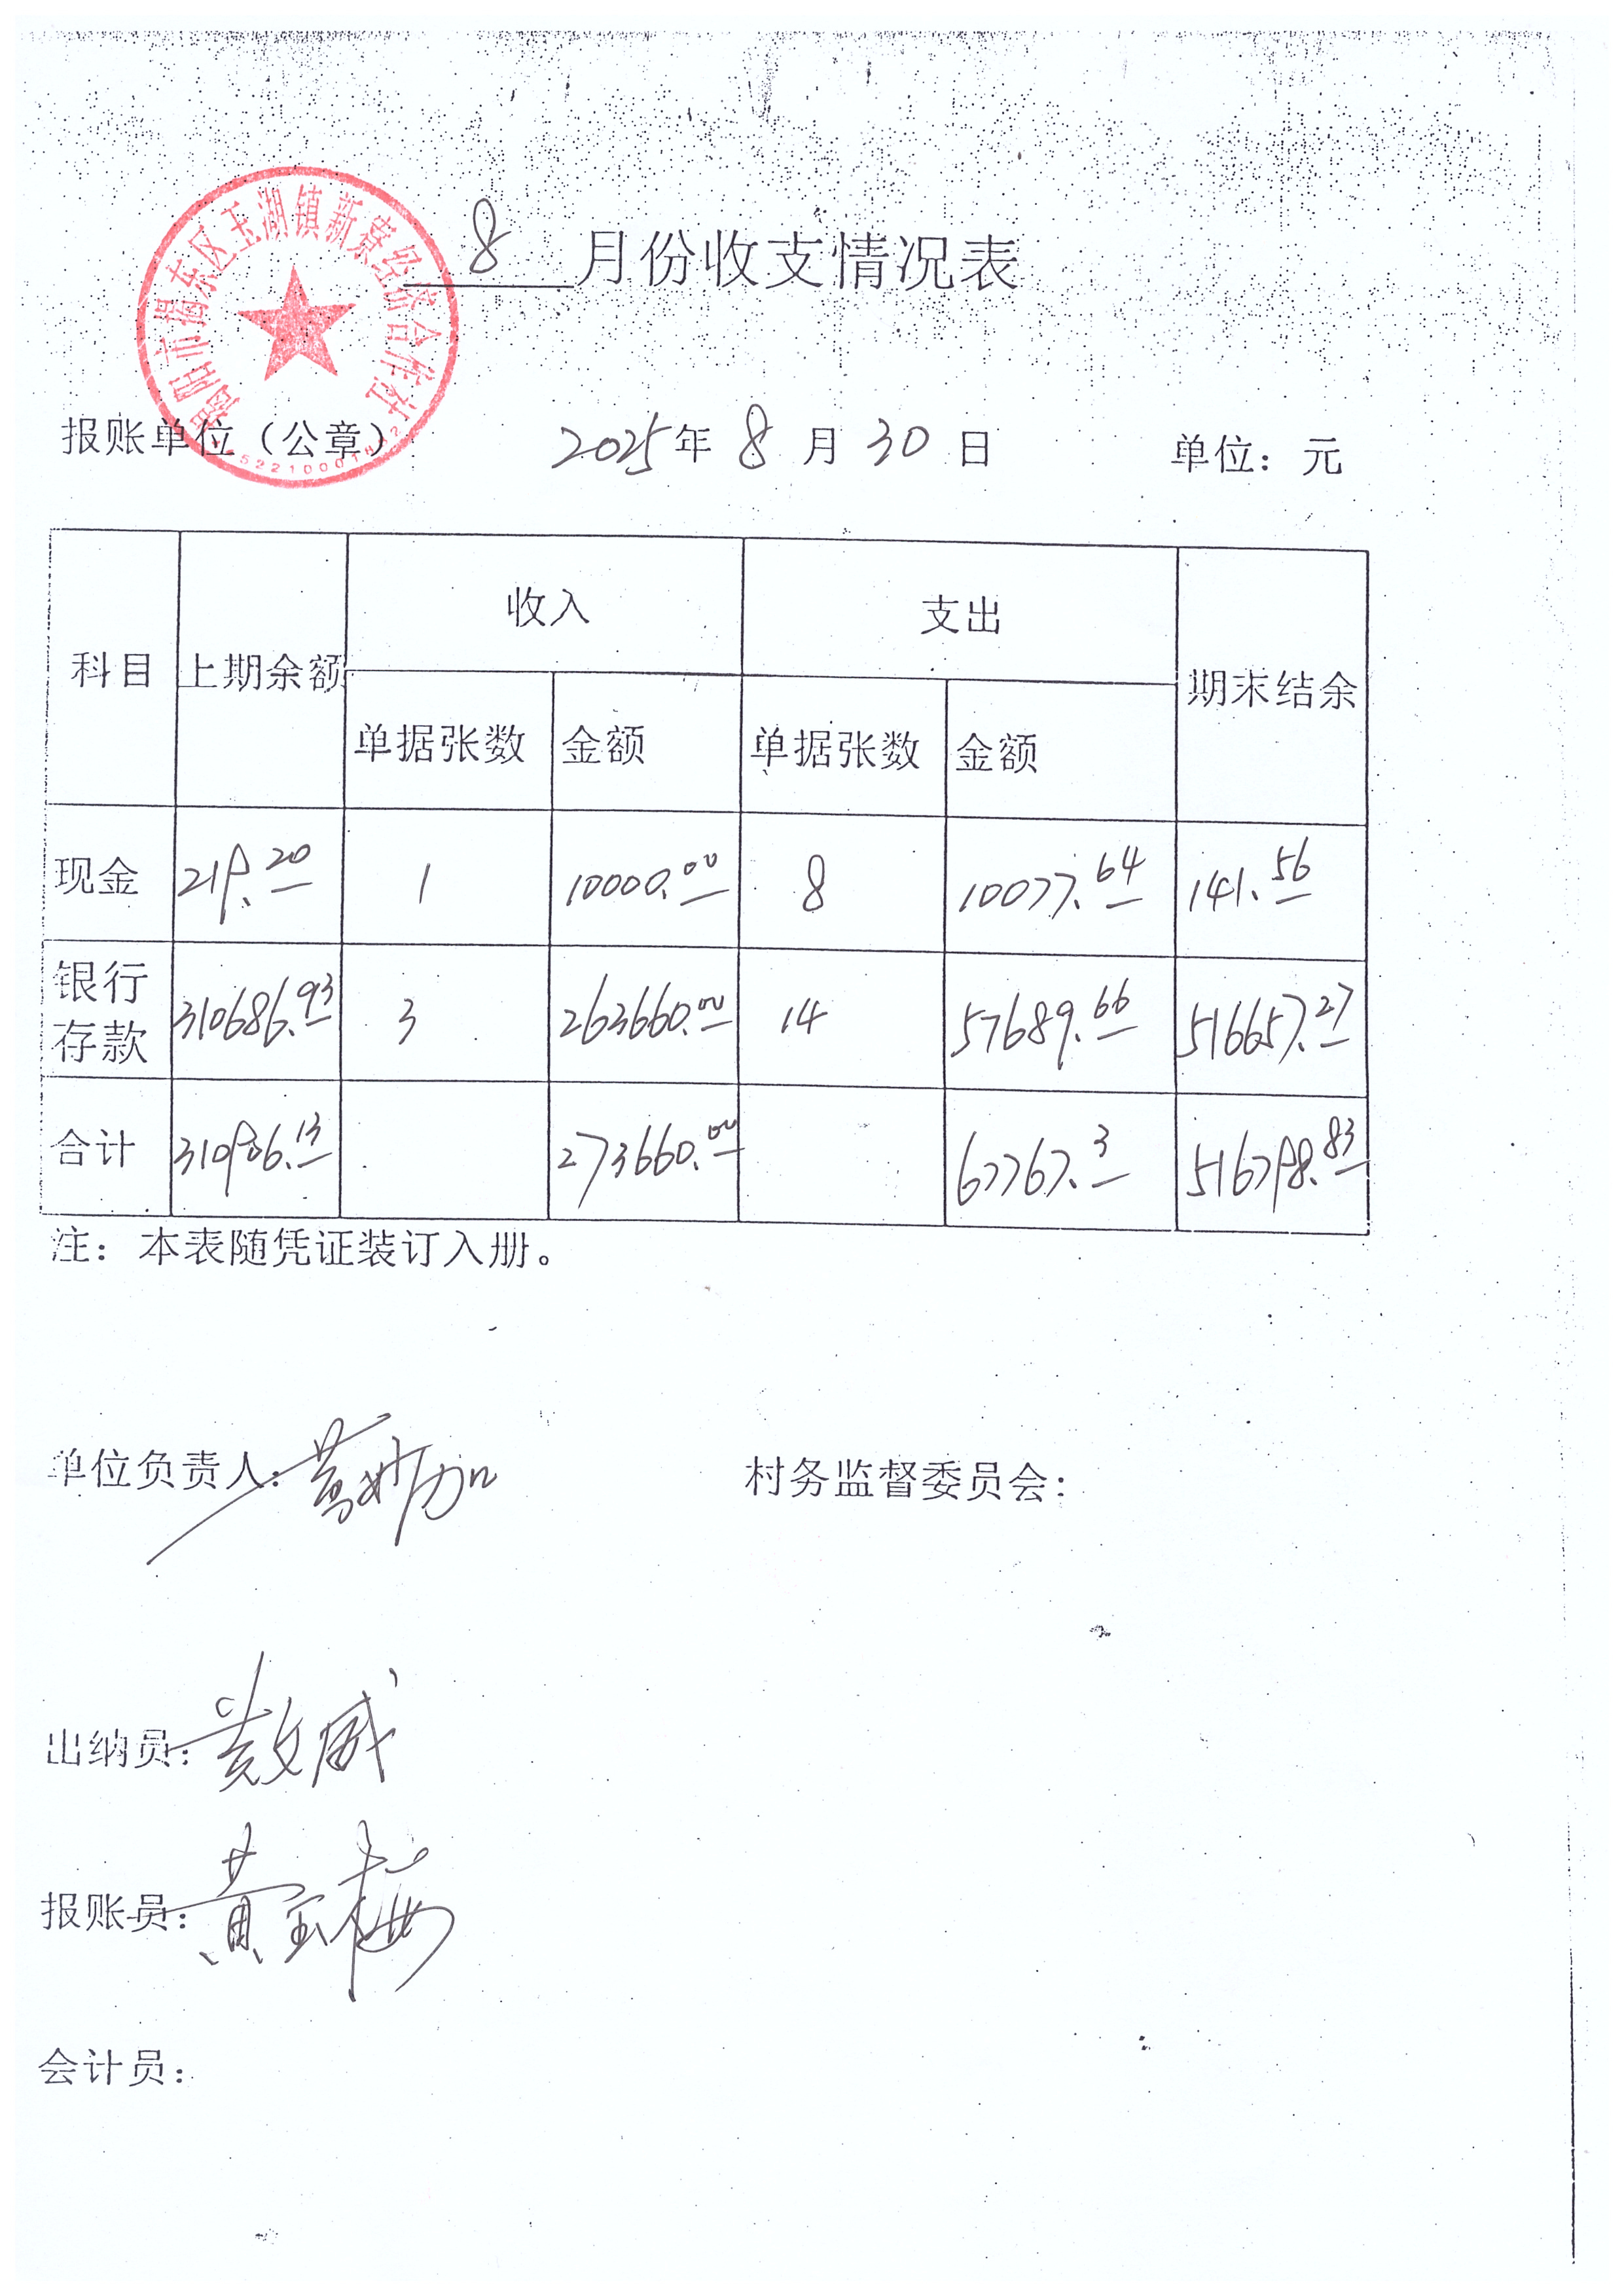 揭阳市揭东区玉湖镇新寮经济合作社
8月份收支情况表
报账单位（公章） 2025年8月30日 单位：元
科目 上期余额 收入 支出 期末结余
单据张数 金额 单据张数 金额
现金 219.20 1 10000.00 8 10077.64 141.56
银行存款 310686.93 3 263660.00 14 57689.66 516657.27
合计 310906.13 273660.00 67767.3 516798.83
注：本表随凭证装订入册。
单位负责人： 村务监督委员会：
出纳员：
报账员：黄宝梅
会计员：